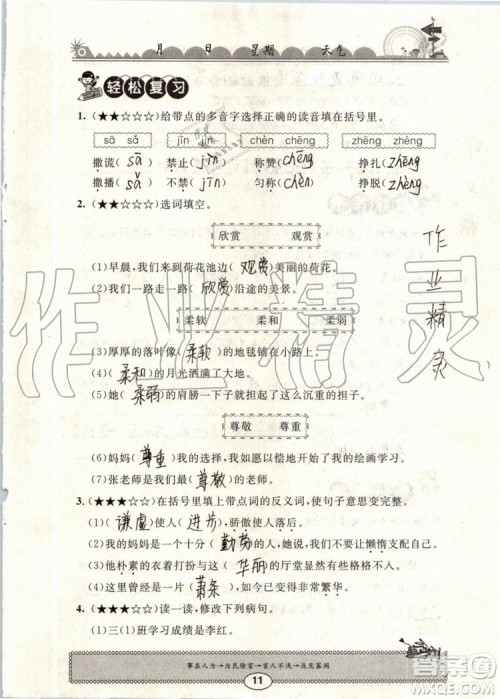 月 日 星期 天气
轻松复习
1. (★★☆☆☆)给带点的多音字选择正确的读音填在括号里。
sā sǎ jīn jìn chèn chēng zhēng zhèng
撒谎( sā ) 禁止( jìn ) 称赞( chēng ) 挣扎( zhēng )
撒播( sǎ ) 不禁( jīn ) 匀称( chèn ) 挣脱( zhèng )
2. (★★☆☆☆)选词填空。
欣赏 观赏
(1)早晨,我们来到荷花池边( 观赏 )美丽的荷花。
(2)我们一路走一路( 欣赏 )沿途的美景。
柔软 柔和 柔弱
(3)厚厚的落叶像( 柔软 )的地毯铺在小路上。
(4)( 柔和 )的月光洒满了大地。
(5)她( 柔弱 )的肩膀上却承担起了这么沉重的担子。
尊敬 尊重
(6)妈妈( 尊重 )我的选择,我如愿以偿地开始了我的绘画学习。
(7)张老师是我们最( 尊敬 )的老师。
3. (★★★☆☆)在括号里填上带点词的反义词,使句子意思变完整。
(1)( 谦虚 )使人( 进步 ),骄傲使人落后。
(2)我的妈妈是一个十分( 勤劳 )的人,她说,我们不要让懒惰主宰自己。
(3)他朴素的衣着打扮与这( 华丽 )的厅堂显然有些格格不入。
(4)这里曾经是一片( 萧条 ),今天却是非常繁华。
4. (★★★☆☆)读一读,修改下列病句。
(1)三(1)班学习成绩是李红。
事在人为→为民除害→害人不浅→浅见寡闻
11
作业精灵
作业精灵
作业帮
MXQE.COM